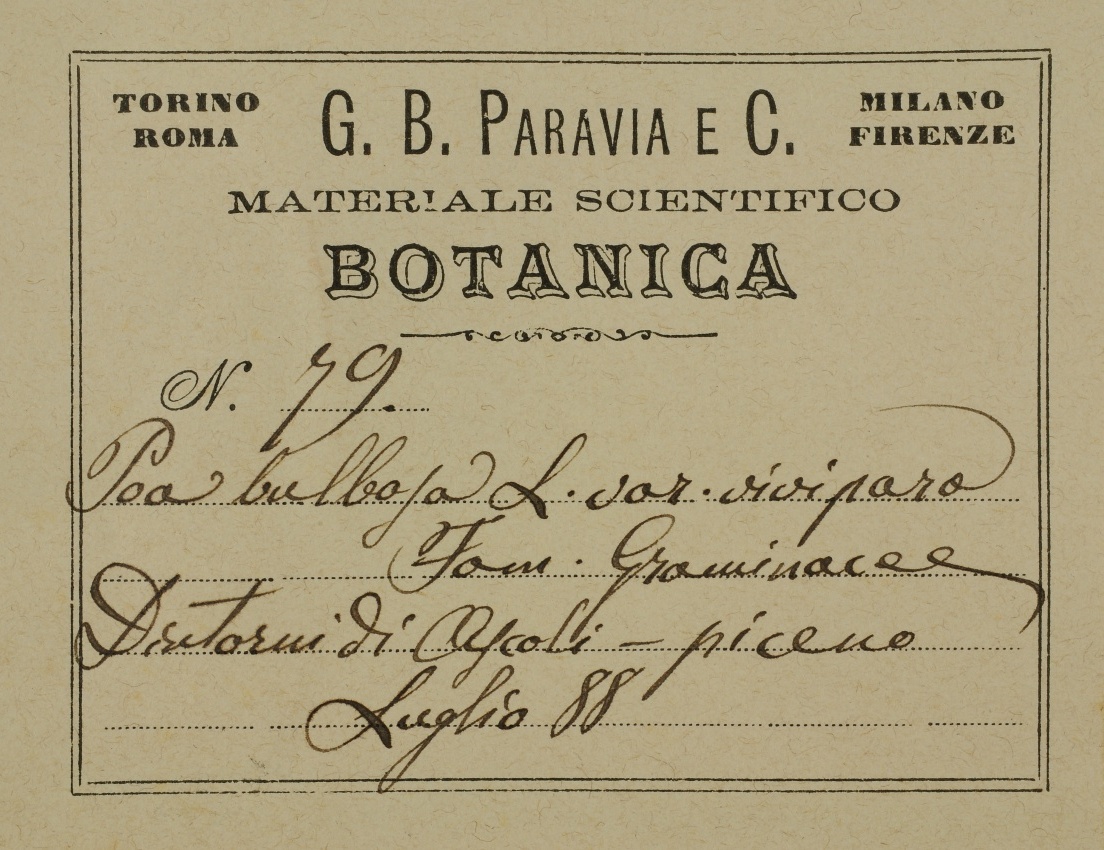 TORINO ROMA G. B. PARAVIA E C. MILANO FIRENZE
MATERIALE SCIENTIFICO
BOTANICA
N. 79.
Poa bulbosa L. var. vivipara
Fam. Graminacee
Dintorni di Ascoli - piceno
Luglio 88